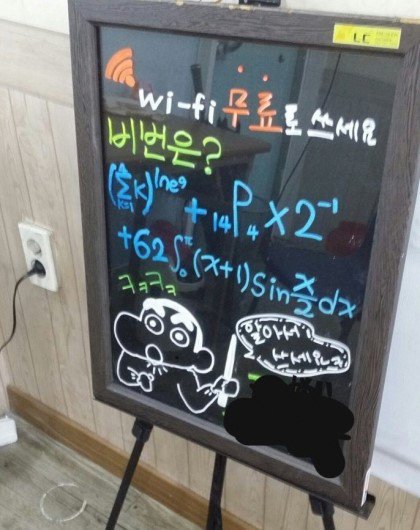 LC
wi-fi 무료로 쓰세요
비번은?
(∑_{k=1}^{4}k)^{lne⁹} + ₁₄P₄ × 2⁻¹
+62∫₀^π (x+1)Sin x/2 dx
ㅋㅋㅋㅋ
알아서
쓰세요ㅋ